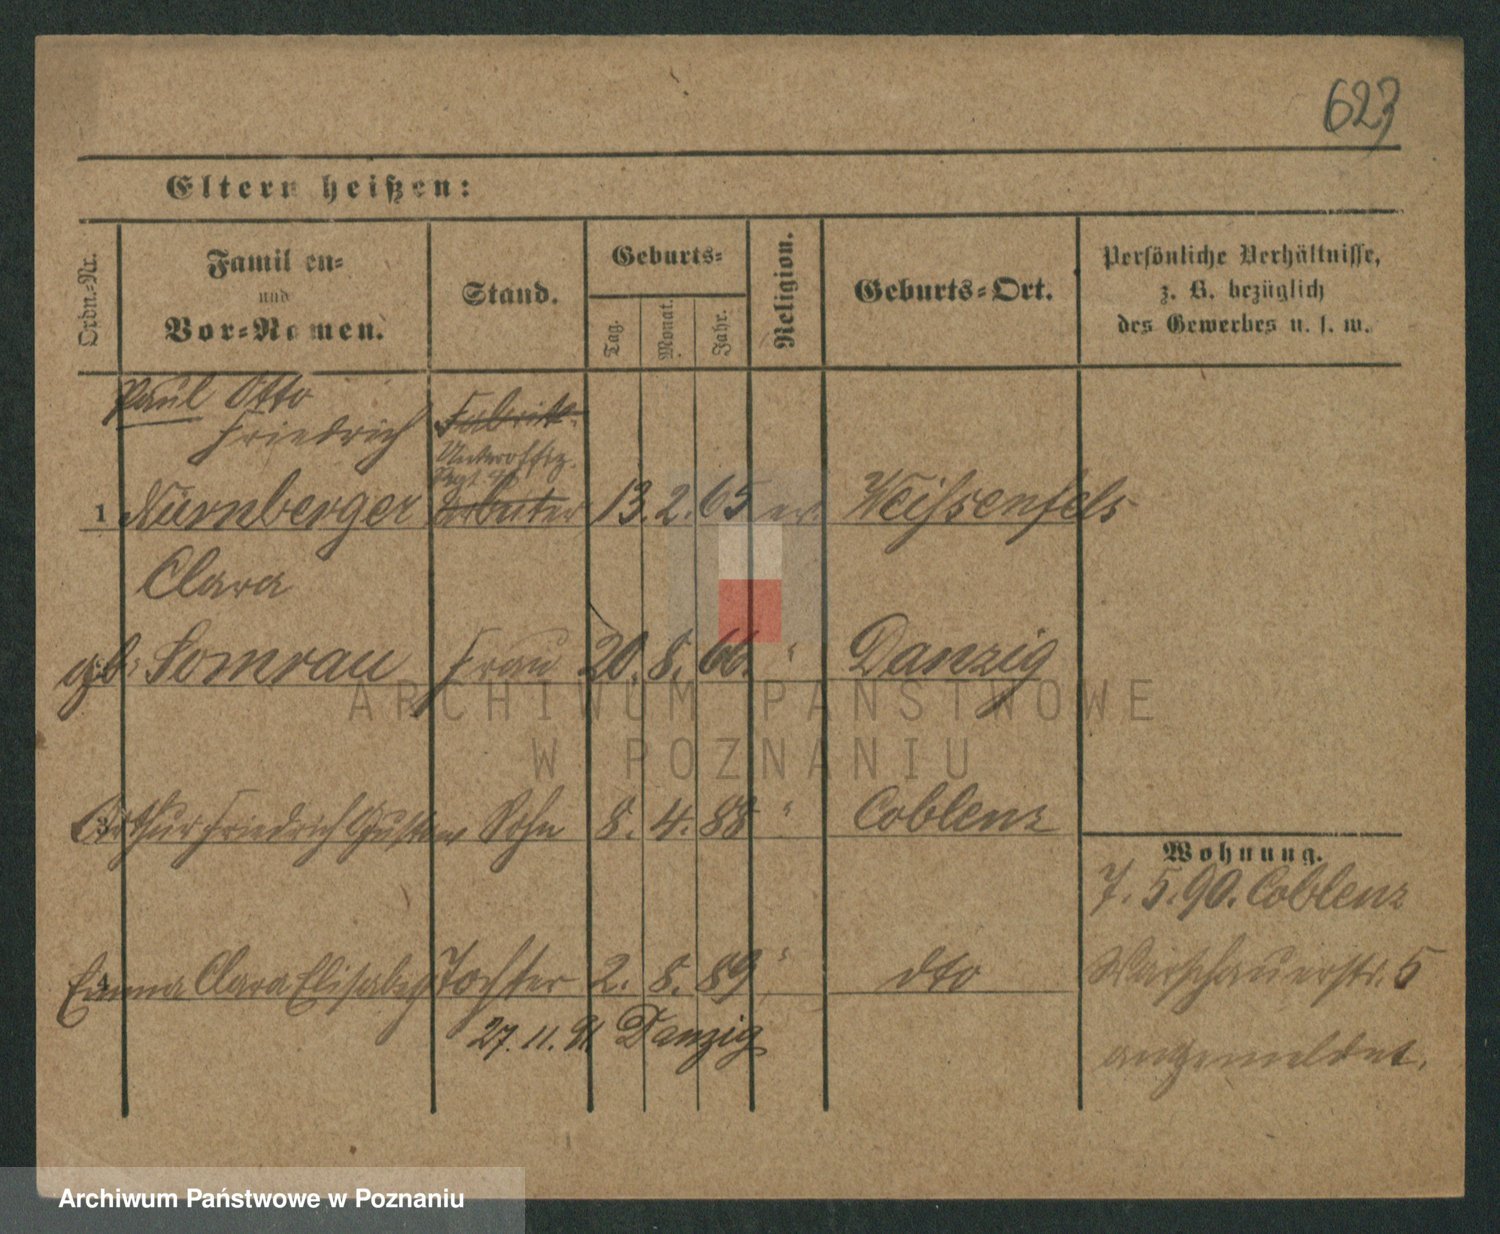 623
Eltern heißen:
Ordn.-Nr.
Familien-
und
Vor-Namen.
Stand.
Geburts-
Tag.
Monat.
Jahr.
Religion.
Geburts-Ort.
Persönliche Verhältnisse,
z. B. bezüglich
des Gewerbes u. s. w.
Paul Otto
Friedrich
Fabrik-
Unteroffiz.
1 Nürnberger arbeiter 13. 2. 65 ev. Weißenfels
Clara
geb. Somrau Frau 20. 8. 66. " Danzig
Arthur Friedrich Gustav Sohn 8. 4. 88 " Coblenz
Wohnung.
7. 5. 90. Coblenz
Emma Clara Elisabeth Tochter 2. 8. 89 " dto
Warschauerstr. 5
27. 11. 91. Danzig
angemeldet.
ARCHIWUM PAŃSTWOWE
W POZNANIU
Archiwum Państwowe w Poznaniu